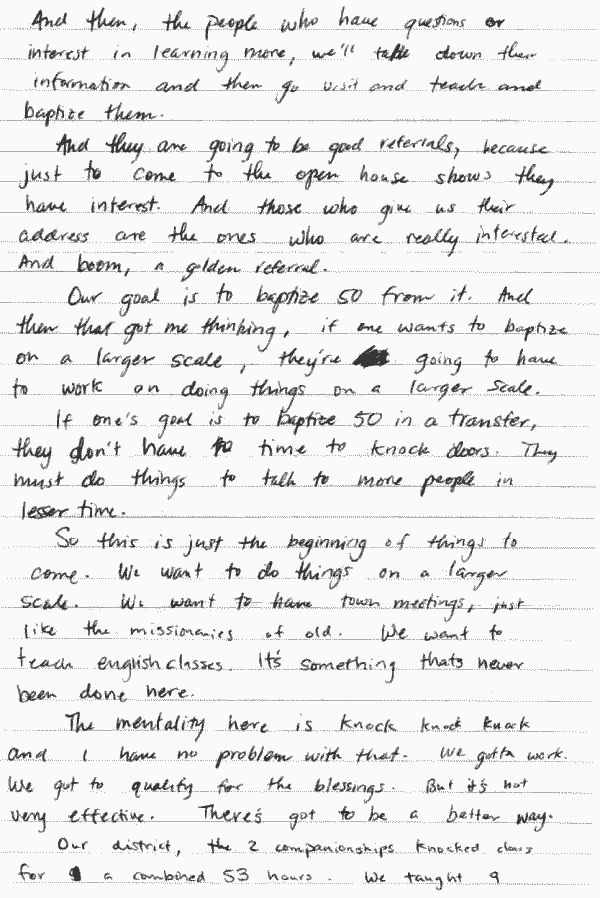 And then, the people who have questions or
interest in learning more, we'll take down their
information and then go visit and teach and
baptize them.
And they are going to be good referrals, because
just to come to the open house shows they
have interest. And those who give us their
address are the ones who are really interested.
And boom, a golden referral.
Our goal is to baptize 50 from it. And
then that got me thinking, if one wants to baptize
on a larger scale, they're going to have
to work on doing things on a larger scale.
If one's goal is to baptize 50 in a transfer,
they don't have to time to knock doors. They
must do things to talk to more people in
lesser time.
So this is just the beginning of things to
come. We want to do things on a larger
scale. We want to have town meetings, just
like the missionaries of old. We want to
teach english classes. It's something thats never
been done here.
The mentality here is knock knock knock
and I have no problem with that. We gotta work.
We got to qualify for the blessings. But it's not
very effective. There's got to be a better way.
Our district, the 2 companionships knocked doors
for a combined 53 hours. We taught 9